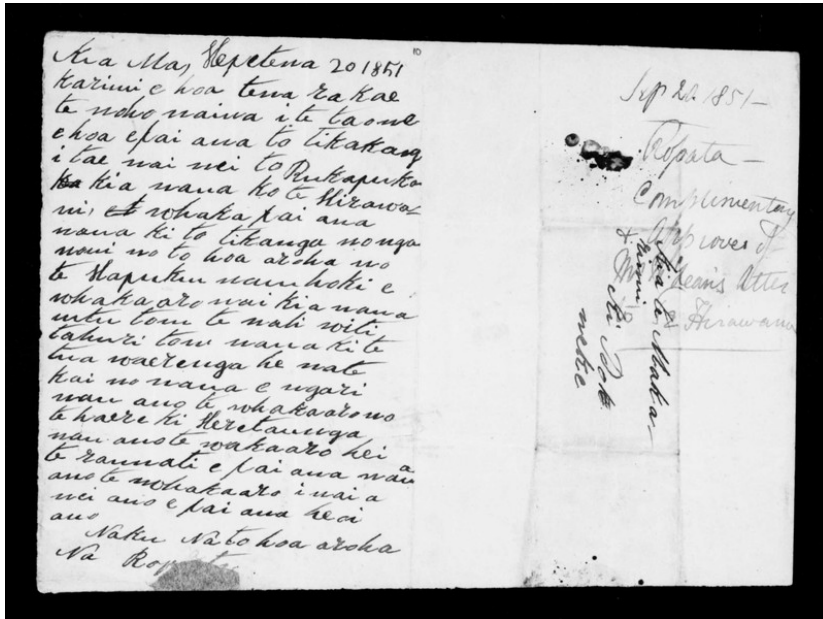 Kia Mas, Hepetema 20 1851
karini e hoa tena ra koe
te noho naiwa i te taone
e hoa e pai ana to tikakang
i tae nai nei to Rukapuka
kia nana ko te Hirawa
ni, whaka pai ana
nana ki to tikanga no nga
noni no to hoa aroha no
te Hapuku nau hoki e
whakaaro nai kia nana
mtu tonu te nali witi
tahuri tonu nana ki te
tua waerenga he nate
kai no nana e ngari
nau ano te whakaaro no
te haere ki Heretaunga
nau ano te wakaaro hei
te raunati e pai ana nau
ano te whakaaro i nai a
nei ano e pai ana heoi
ano
Naku Na to hoa aroha
Na Rop
10
Sep 20. 1851—
Ropata —
Complimentary
approves of
Mr Leans
& Hirawanu
Kia te Maka
rini
Ki Po
neke